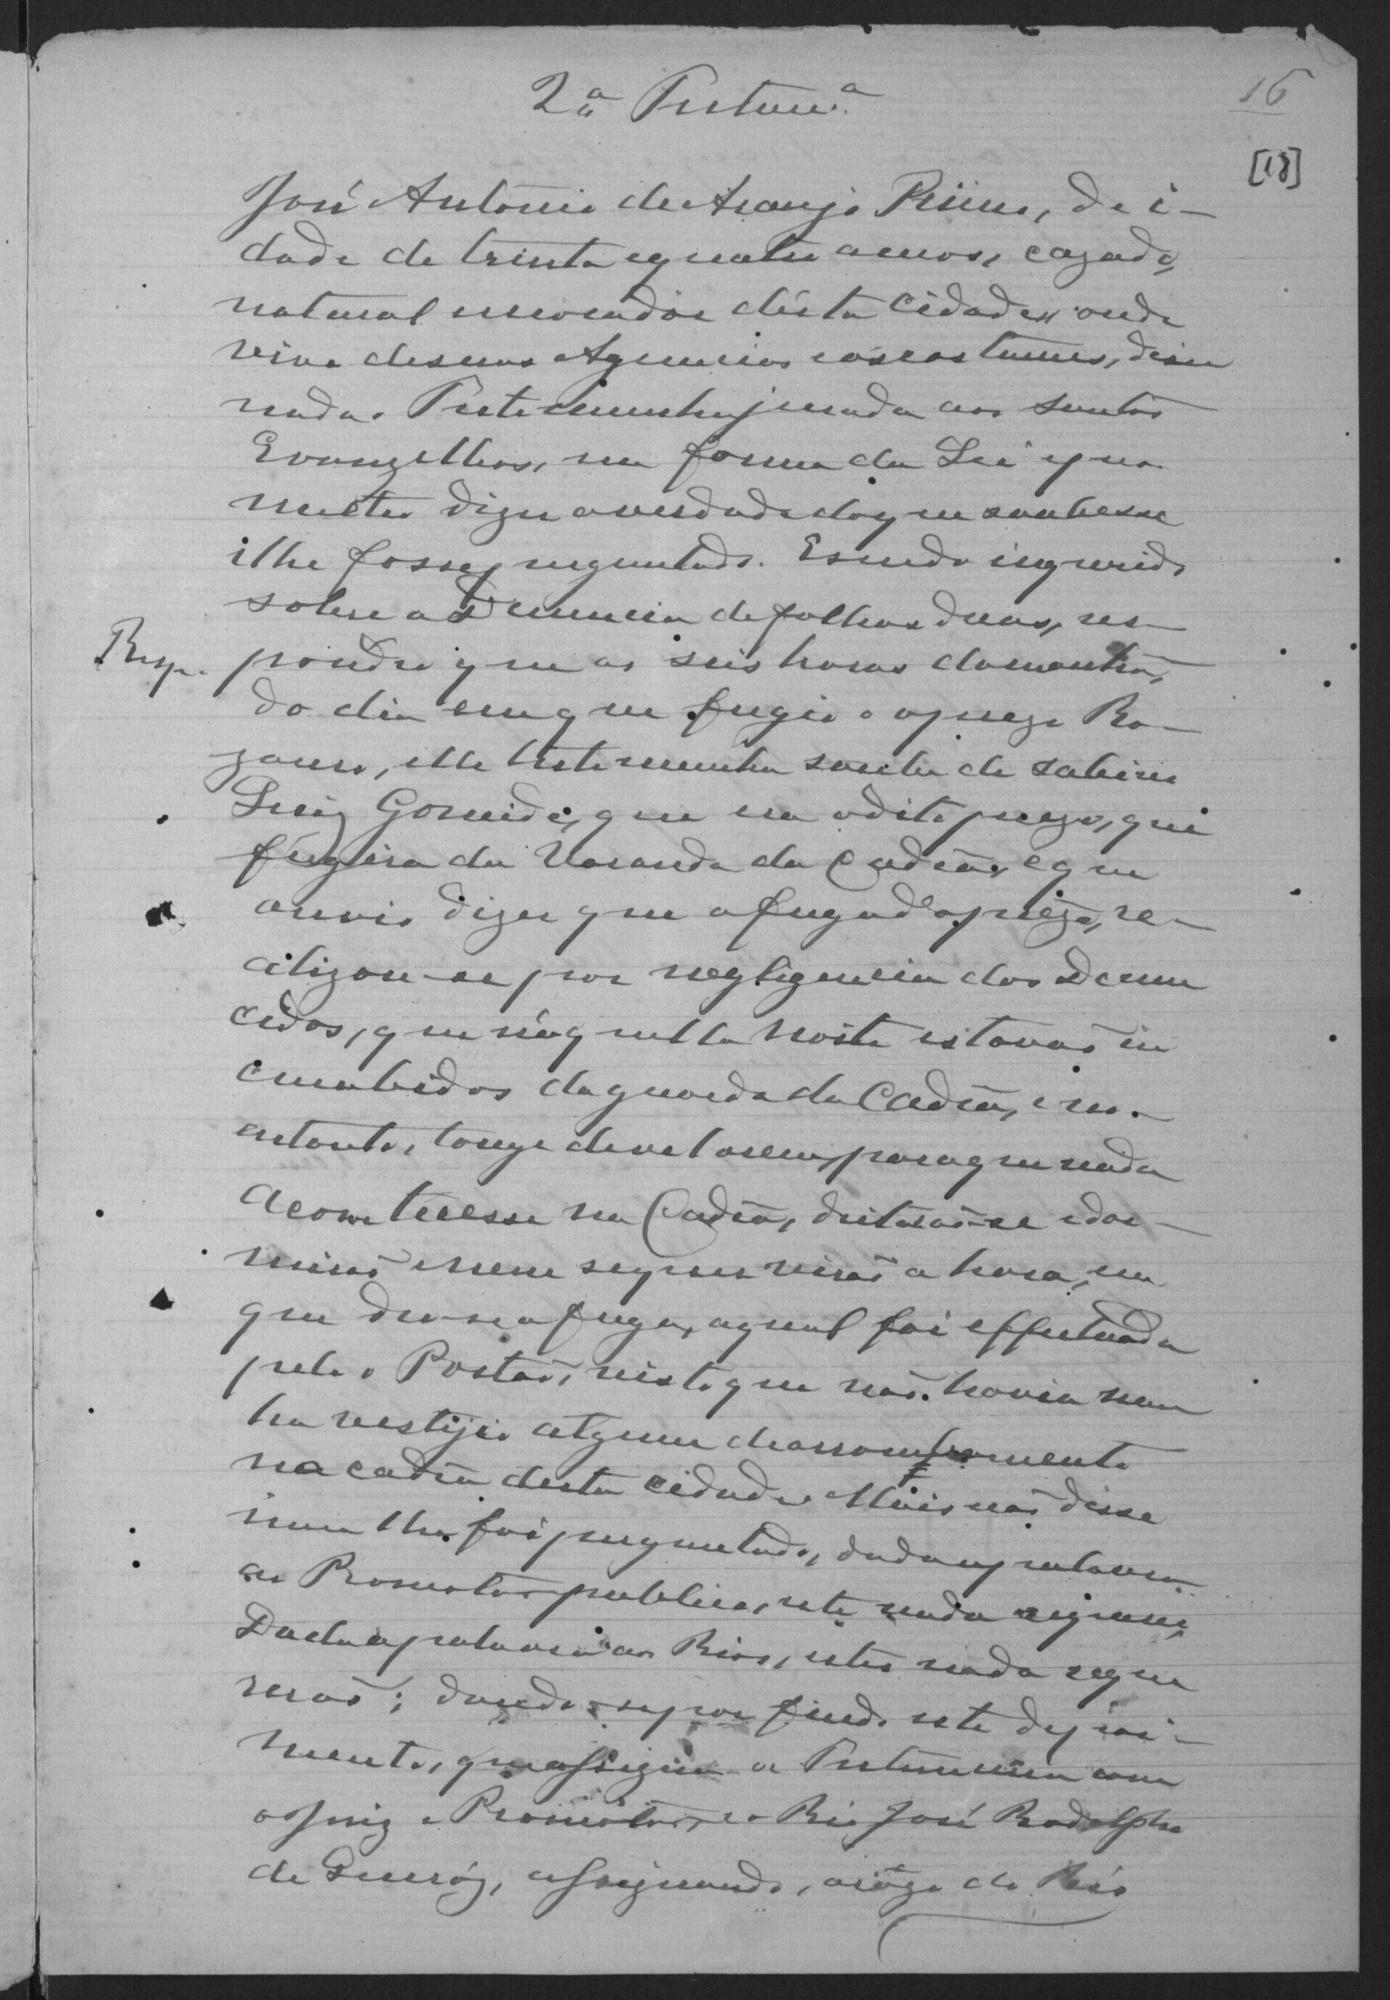 16
[18]
2ª Testemª
José Antonio de Araujo Primo, de i-
dade de trinta e quatro annos, cazado,
natural e morador desta Cidade, onde
vive de suas Agencias e aos costumes, disse
nada. Testemunha jurada aos Santos
Evangelhos, na forma da Lei e pro
metteu dizer a verdade do que soubesse
e lhe fosse preguntado. E sendo inquerido
sobre a Denuncia de folhas duas, res-
Resp. pondeu que as seis horas da manhã,
do dia em que fugio o o prezo Ro-
zeno, elle testemunha soube de Sabino
Luiz Gomide, que era o dito prezo, que
fugira da Varanda da Cadêa, e que
ouvio dizer que a fuga do prezo, re-
alizou-se por negligencia dos Denun
cidos, que náquella noite estavão in
cumbidos da guarda da Cadêa, e no
entanto, longe de vellarem, para que nada
acontecesse na Cadêa, deitarão-se e dor-
mirão e nem sequer virão a hora, em
que deu-se a fuga, a qual foi effectuada
pelo o Portão, visto que não havia nem
hu vestijio algum de arrombamento
na cadêa desta cidade. Mais não disse
nem lhe foi preguntado, dada a palavra
ao Promotor publico, este nada requereu,
Dada a palavra aos Reos, estes nada reque
rerão; dando-se por findo este depoi-
mento, que assigna a Testemunha com
o Juiz e Promotor, e o Reo José Rodolpho
de Queiróz, assignando, a rôgo do Réo